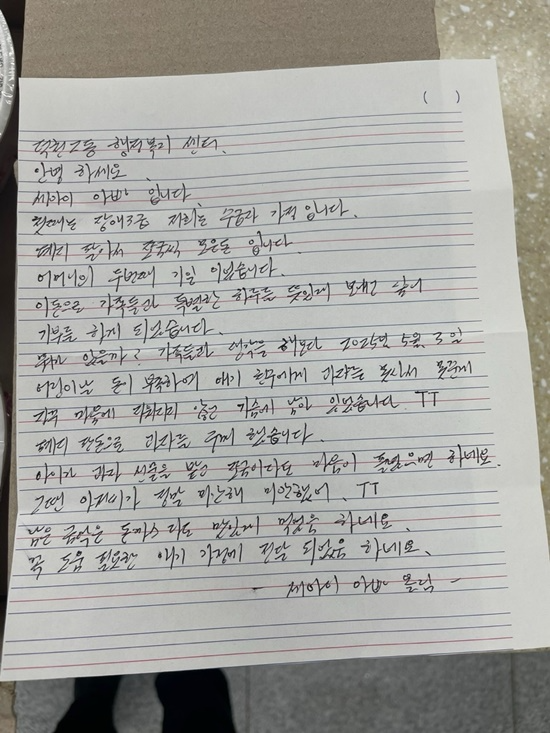 ( )
덕천2동 행정복지 센터.
안녕 하세요.
세아이 아빠 입니다.
첫째는 장애3급 저희는 수급자 가정 입니다.
폐지 팔아서 조금씩 모은돈 입니다.
어머니의 두번째 기일 이였습니다.
이돈으로 가족들과 특별한 하루를 뜻있게 보내고 싶어
기부를 하게 되었습니다.
뭐가 있을까? 가족들과 생각을 해보다 2025년 5월 3일
어린이날 돈이 부족하여 애기 한무에게 과자를 못사서 못준게
자꾸 마음에 지워지지 않고 가슴에 남아 있었습니다. TT
폐지 판돈으로 과자를 구매 했습니다.
아이가 과자 선물을 받고 조금이라도 마음이 풀렸으면 하네요.
그땐 아저씨가 정말 미안해 미안했어. TT
남은 금액은 돈까스 라도 맛있게 먹었음 하네요.
꼭 도움 필요한 애기 가정에 전달 되었음 하네요.
- 세아이 아빠 올림 -